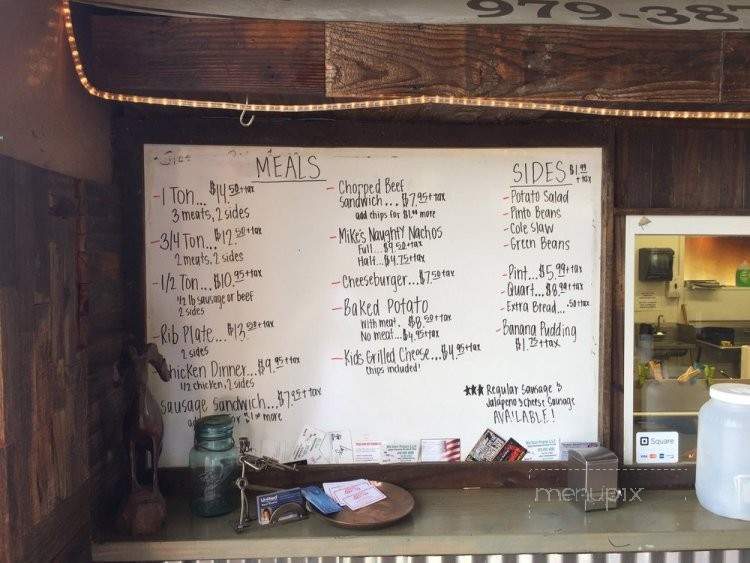 979-387
MEALS
-1 Ton... $14.50+tax
3 meats, 2 sides
-3/4 Ton... $12.50+tax
2 meats, 2 sides
-1/2 Ton... $10.95+tax
1/2 lb sausage or beef
2 sides
-Rib Plate... $13.50+tax
2 sides
Chicken Dinner... $9.95+tax
1/2 chicken, 2 sides
sausage sandwich... $7.25+tax
for $1.00 more
- Chopped Beef
Sandwich... $7.95+tax
add chips for $1.00 more
- Mike's Naughty Nachos
Full... $9.50+tax
Half... $4.75+tax
- Cheeseburger... $7.50+tax
- Baked Potato
With meat. $8.50+tax
No meat... $4.95+tax
- Kids Grilled Cheese... $4.95+tax
chips included!
SIDES $1.99
+tax
- Potato Salad
- Pinto Beans
- Cole Slaw
- Green Beans
- Pint... $5.99+tax
- Quart... +tax
- Extra Bread... .50+tax
- Banana Pudding
$1.75+tax
★★★ Regular Sausage &
Jalapeno & Cheese Sausage
AVAILABLE!
Square
VISA
United
menupix